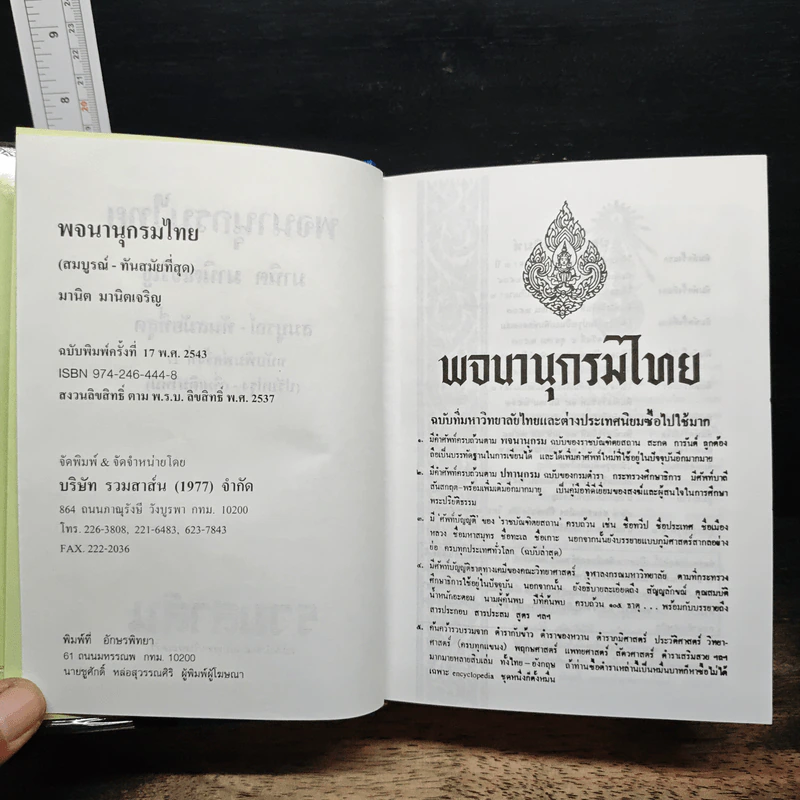 พจนานุกรมไทย
(สมบูรณ์ - ทันสมัยที่สุด)
มานิต มานิตเจริญ
ฉบับพิมพ์ครั้งที่ 17 พ.ศ. 2543
ISBN 974-246-444-8
สงวนลิขสิทธิ์ ตาม พ.ร.บ. ลิขสิทธิ์ พ.ศ. 2537
จัดพิมพ์ & จัดจำหน่ายโดย
บริษัท รวมสาส์น (1977) จำกัด
864 ถนนภาณุรังษี วังบูรพา กทม. 10200
โทร. 226-3808, 221-6483, 623-7843
FAX. 222-2036
พิมพ์ที่ อักษรพิทยา
61 ถนนมหรรณพ กทม. 10200
นายชูศักดิ์ หล่อสุวรรณศิริ ผู้พิมพ์ผู้โฆษณา
พจนานุกรมไทย
ฉบับที่มหาวิทยาลัยไทยและต่างประเทศนิยมซื้อไปใช้มาก
๑. มีคำศัพท์ครบถ้วนตาม พจนานุกรม ฉบับของราชบัณฑิตยสถาน สะกด การันต์ ถูกต้อง
ถือเป็นบรรทัดฐานในการเขียนได้ และได้เพิ่มคำศัพท์ใหม่ที่ใช้อยู่ในปัจจุบันอีกมากมาย
๒. มีคำศัพท์ครบถ้วนตาม ปทานุกรม ฉบับของกรมตำรา กระทรวงศึกษาธิการ มีศัพท์บาลี
สันสกฤต-พร้อมเพิ่มเติมอีกมากมาย เป็นคู่มือที่ดีเยี่ยมของสงฆ์และผู้สนใจในการศึกษา
พระปริยัติธรรม
๓. มี ‘ศัพท์บัญญัติ’ ของ ‘ราชบัณฑิตยสถาน’ ครบถ้วน เช่น ชื่อทวีป ชื่อประเทศ ชื่อเมือง
หลวง ชื่อมหาสมุทร ชื่อทะเล ชื่อเกาะ นอกจากนั้นยังบรรยายแบบภูมิศาสตร์สากลอย่าง
ย่อ ครบทุกประเทศทั่วโลก (ฉบับล่าสุด)
๔. มีศัพท์บัญญัติธาตุทางเคมีของคณะวิทยาศาสตร์ จุฬาลงกรณมหาวิทยาลัย ตามที่กระทรวง
ศึกษาธิการใช้อยู่ในปัจจุบัน นอกจากนั้น ยังอธิบายละเอียดถึง สัญญลักษณ์ คุณสมบัติ
น้ำหนักอะตอม นามผู้ค้นพบ ปีที่ค้นพบ ครบถ้วน ๑๐๕ ธาตุ . . . พร้อมกับบรรยายถึง
สารประกอบ สารประสม สูตร ฯลฯ
๕. ค้นคว้ารวบรวมจาก ตำรากับข้าว ตำราของหวาน ตำราภูมิศาสตร์ ประวัติศาสตร์ วิทยา-
ศาสตร์ (ครบทุกแขนง) พฤกษศาสตร์ แพทยศาสตร์ สัตวศาสตร์ ตำราเสริมสวย ฯลฯ
มากมายหลายสิบเล่ม ทั้งไทย - อังกฤษ ถ้าท่านซื้อตำราเหล่านี้เป็นหมื่นบาทก็หาซื้อไม่ได้
เฉพาะ encyclopedia ชุดหนึ่งก็ตั้งหมื่น
9
8
24
23
22
21
20